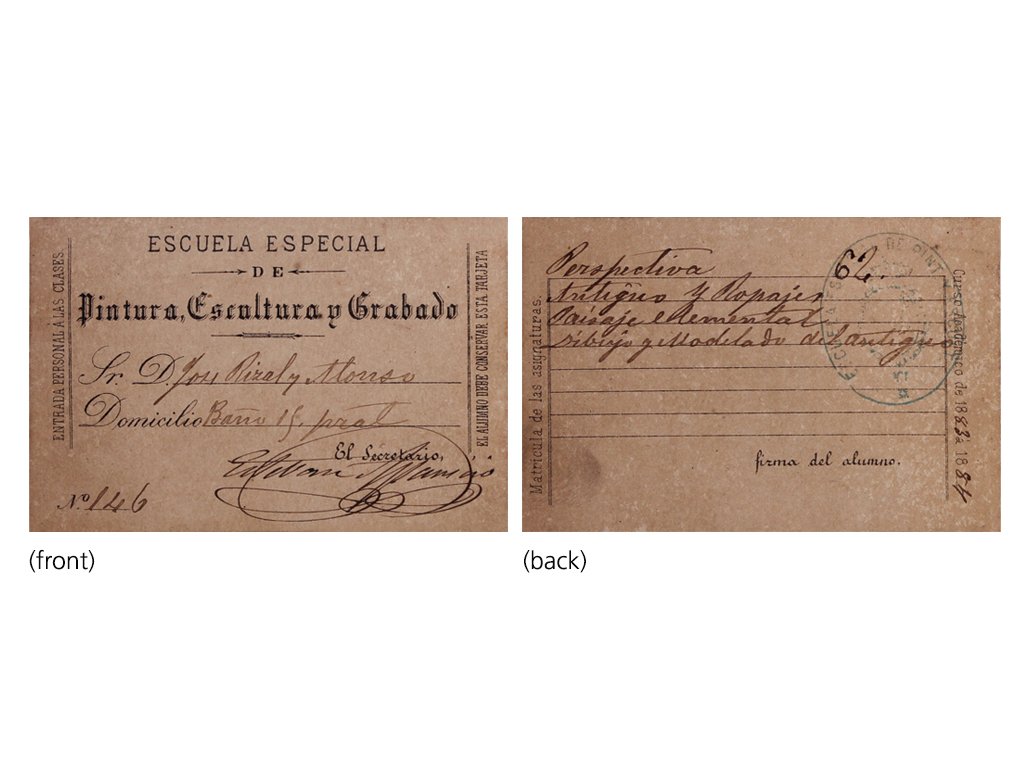 ESCUELA ESPECIAL
DE
Pintura, Escultura y Grabado
ENTRADA PERSONAL A LAS CLASES
EL ALUMNO DEBE CONSERVAR ESTA TARJETA
Sr. D. José Rizal y Alonso
Domicilio Barro 15, pral
El Secretario,
Esteban
N.º 146
(front)
Perspectiva
Antiguo y Ropajes
Paisaje elemental
Dibujo y Modelado del antiguo
62
Matrícula de las asignaturas.
Curso Académico de 1883 a 1884
firma del alumno.
ESCUELA ES DE PINT
(back)